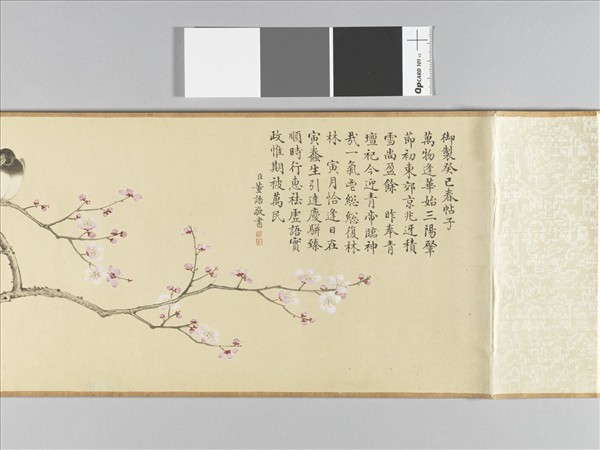 御製癸巳春帖子
萬物逢華始三陽肇
節初東郊京兆迓積
雪尚盈餘 昨奉青
壇祀今迎青帝臨神
哉一氣 總總復林
林 寅月恰逢日在
寅蠢生引達慶駢臻
順時行惠祛虛語實
政惟期被萬民
臣董誥敬書
QPCARD 101